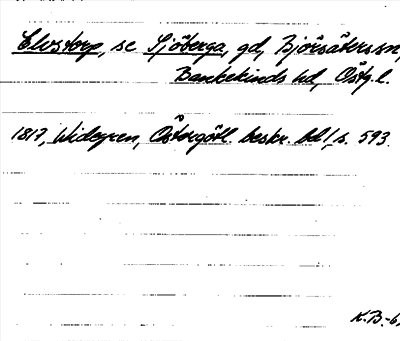 Elvstorp, se Sjöberga, gd, Björsäters sn,
Bankekinds hd, Östg.l.
1817, Widegren, Östergötl. beskr. bd 1, s. 593.
K.B.-6